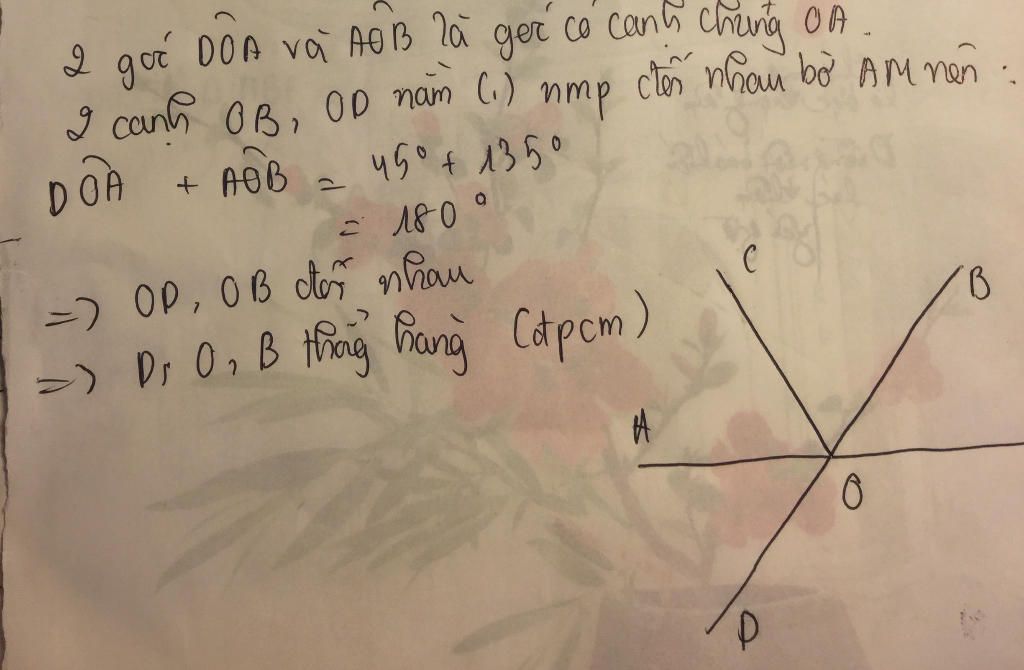 2 góc DÔA và AÔB là góc có cạnh chung OA.
2 cạnh OB, OD nằm (.) nmp đối nhau bờ AM nên :
DÔA + AÔB = 45° + 135°
= 180°
=> OD, OB đối nhau
=> D, O, B thẳng hàng (đpcm)
C
B
A
O
D